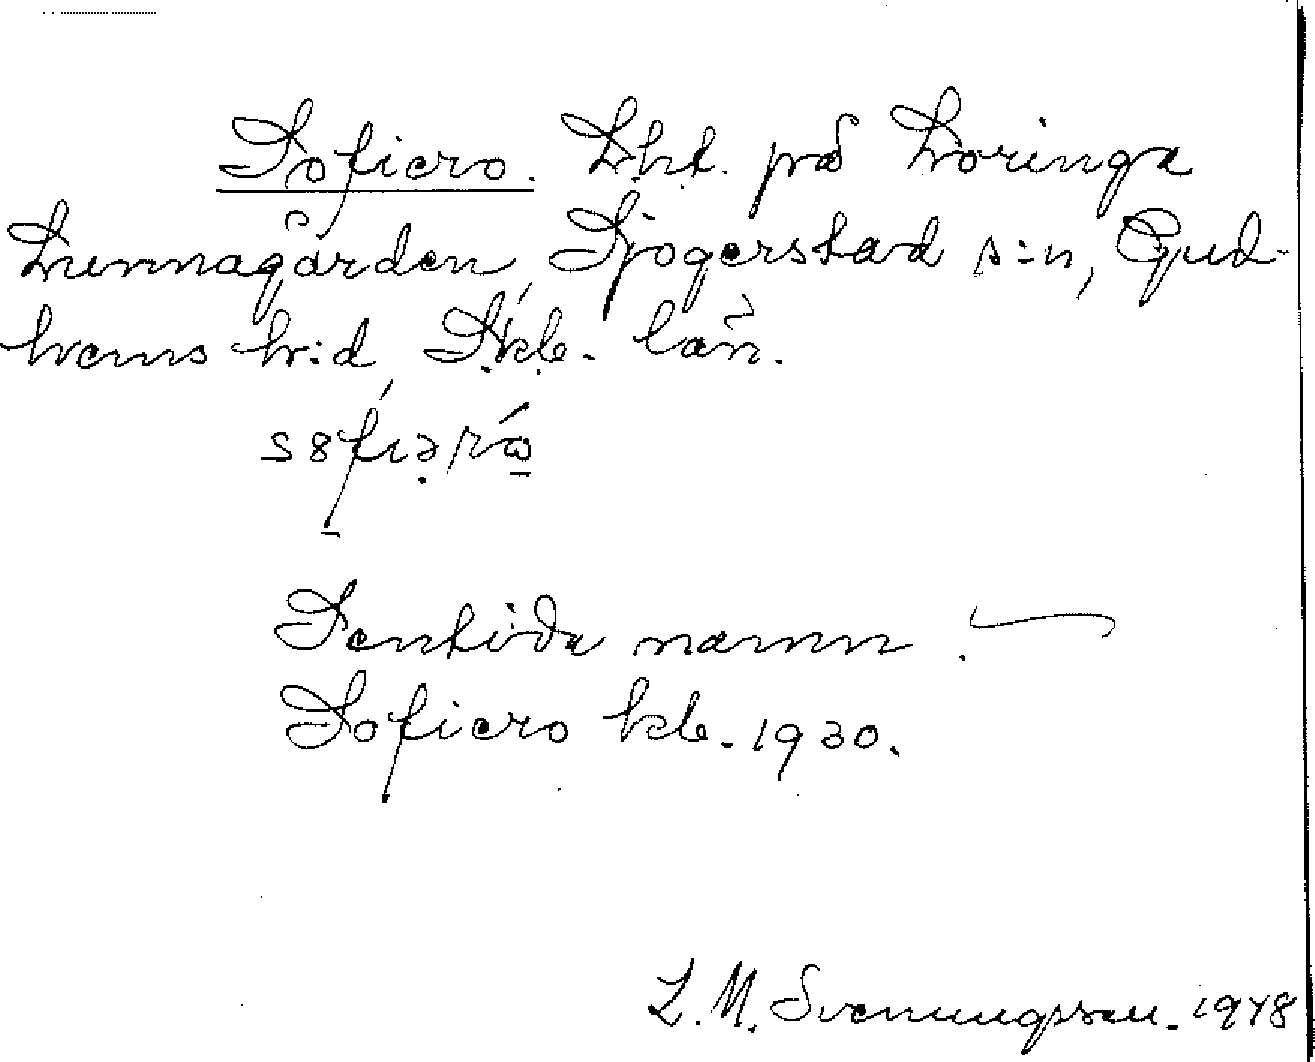 Sofiero. Lht. på Loringa
Lunnagården, Sjogerstad s:n, Gud-
hems h:d, Skb. län.
Sentida namn.
Sofiero kb. 1930.
L. M. Svenungsson. 1948